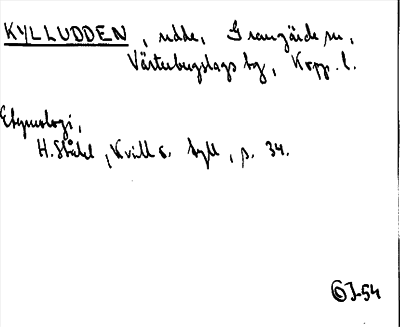 KYLLUDDEN, udde, Grangärde sn,
Västerbergslags tg, Kopp. l.
Etymologi,
H. Ståhl, Kvill o. tyll, s. 34.